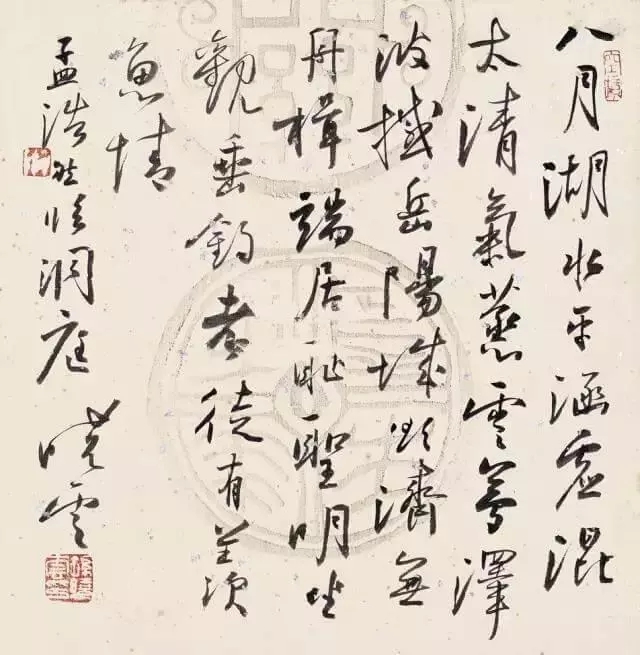 八月湖水平涵虛混
太清氣蒸雲夢澤
波撼岳陽城欲濟無
舟楫端居耻聖明坐
觀垂釣者徒有羨
魚情
孟浩然臨洞庭 曉雲